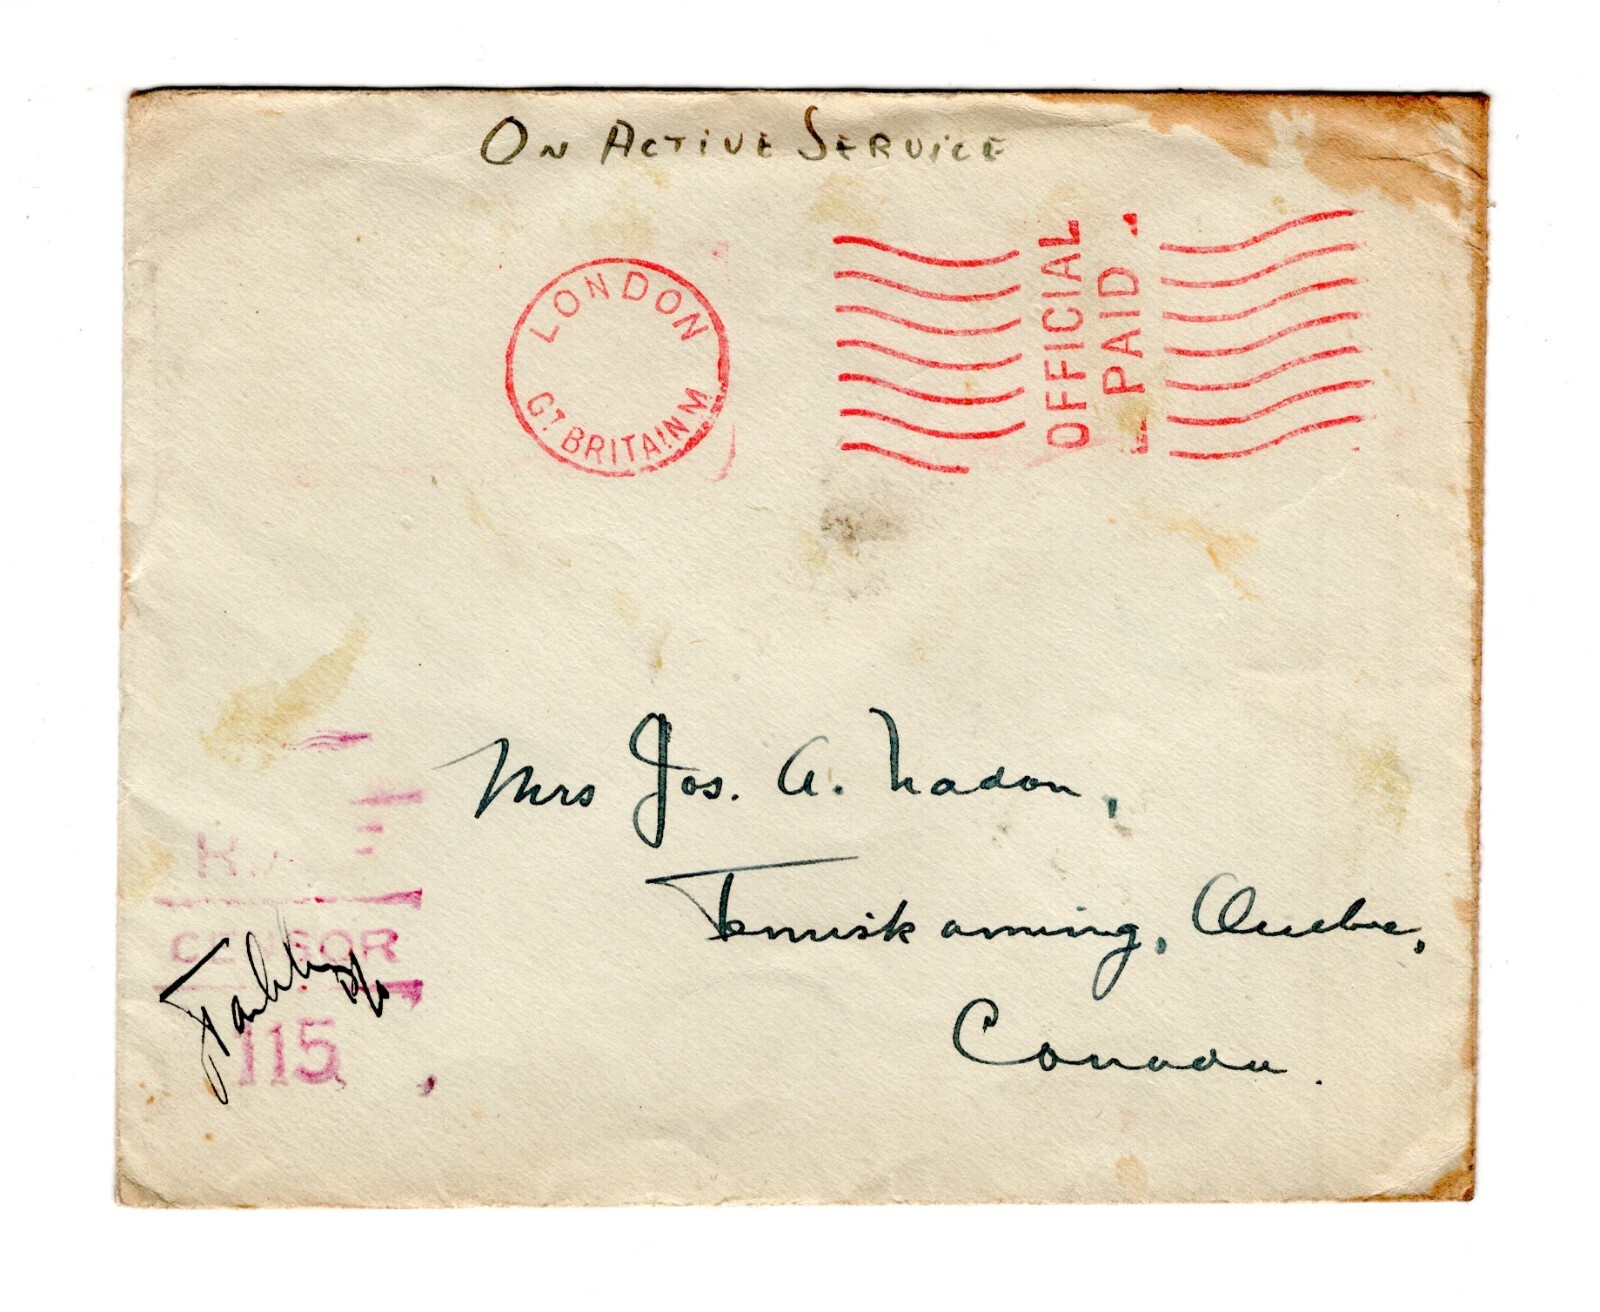 On Active Service
LONDON
GT. BRITAIN M
OFFICIAL
PAID
Mrs Jos. A. Nadon,
Temiskaming, Quebec,
Canada.
CENSOR
115